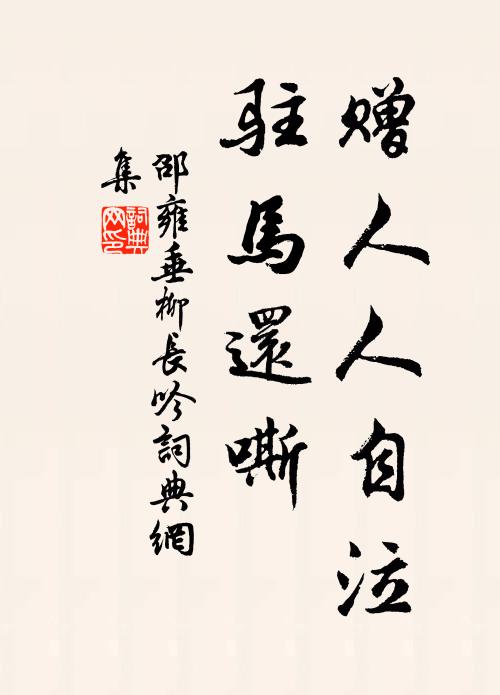 贈人人自泣
駐馬還嘶
邵雍垂柳長吟詞典網
集
詞典
网印